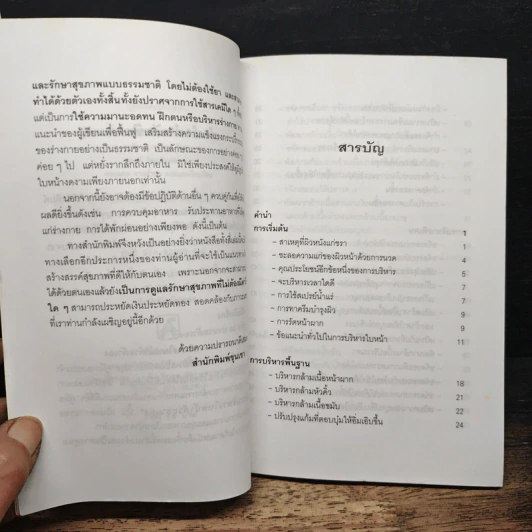 และรักษาสุขภาพแบบธรรมชาติ โดยไม่ต้องใช้ยา
ทำได้ด้วยตัวเองทั้งสิ้นทั้งยังปราศจากการใช้สารเคมีใด ๆ
แต่เป็นการใช้ความมานะอดทน ฝึกตนหรือบริหารร่างกาย
แนะนำของผู้เขียนเพื่อฟื้นฟู เสริมสร้างความแข็งแรง
ของร่างกายอย่างเป็นธรรมชาติ เป็นลักษณะของการอย่าง
ค่อย ๆ ไป แต่หยั่งรากลึกถึงภายใน มิใช่เพียงประสงค์ให้
ใบหน้างดงามเพียงภายนอกเท่านั้น
นอกจากนี้ยังอาจต้องมีข้อปฏิบัติด้านอื่น ๆ ควบคู่กัน
ผลดียิ่งขึ้นดังเช่น การควบคุมอาหาร รับประทานอาหาร
แก่ร่างกาย การได้พักผ่อนอย่างเพียงพอ ดังนี้เป็นต้น
ทางสำนักพิมพ์จึงหวังเป็นอย่างยิ่งว่าหนังสือ
ทางเลือกอีกประการหนึ่งของท่านผู้อ่านที่จะใช้เป็น
สร้างสรรค์สุขภาพที่ดีให้กับตนเอง เพราะนอกจากจะ
ได้ด้วยตนเองแล้วยังเป็นการดูแลรักษาสุขภาพที่ไม่ต้อง
ใด ๆ สามารถประหยัดเงินประหยัดทอง สอดคล้องกับ
ที่เราท่านกำลังเผชิญอยู่นี้อีกด้วย
ด้วยความปรารถนาดี
สำนักพิมพ์ขุนเขา
สารบัญ
คำนำ
การเริ่มต้น 1
– สาเหตุที่ผิวหนังแก่ชรา 1
– ชะลอความแก่ของผิวหน้าด้วยการนวด 4
– คุณประโยชน์อีกข้อหนึ่งของการบริหาร 5
– จะบริหารเวลาใดดี 6
– การใช้สเปรย์น้ำแร่ 7
– การทาครีมบำรุงผิว 7
– การรัดหน้ามาก 9
– ข้อแนะนำทั่วไปในการบริหารใบหน้า 11
การบริหารพื้นฐาน
– บริหารกล้ามเนื้อหน้าผาก 18
– บริหารกล้ามหัวคิ้ว 21
– บริหารกล้ามเนื้อขมับ 22
– ปรับปรุงแก้มที่ตอบบุ๋มให้อิ่มเอิบขึ้น 24